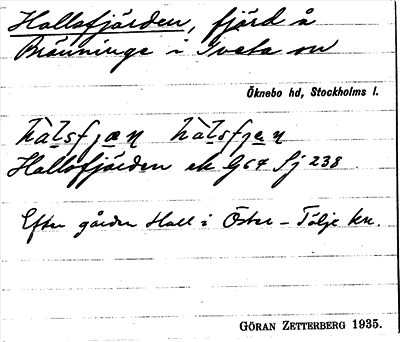 Hallsfjärden, fjärd å
Bränninge i Tveta sn
Öknebo hd, Stockholms l.
hàlsfjæṇ hàlsfjen
Hallsfjärden ek G67 Sj 238
Efter gården Hall i Öster-Tälje kn.
GÖRAN ZETTERBERG 1935.